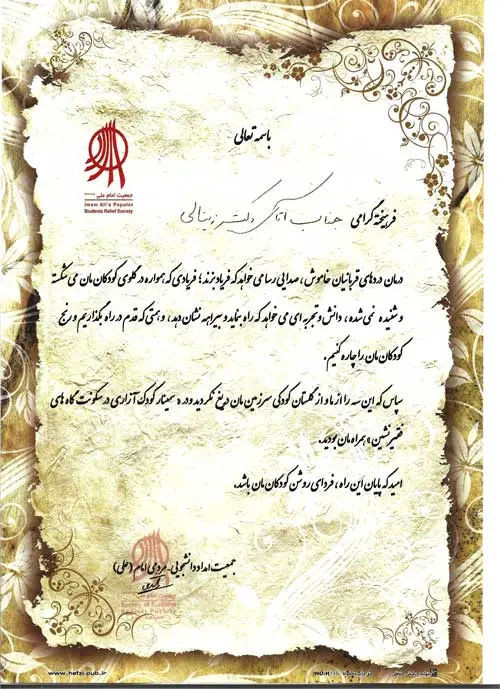 باسمه تعالی
جمعیت امام علی
Imam Ali's Popular
Students Relief Society
فرهیخته گرامی جناب آقای دکتر زینالی
درمان دردهای قربانیان خاموش، صدایی رسا می خواهد که فریاد بزند؛ فریادی که همواره در گلوی کودکان مان می شکسته
و شنیده نمی شده، دانش و تجربه ای می خواهد که راه بنماید و بیراهه نشان دهد، و همتی که قدم در راه بگذاریم و رنج
کودکان مان را چاره کنیم.
سپاس که این سه را از ما و از گلستان کودکی سرزمین مان دریغ نکردید و در « سمینار کودک آزاری در سکونت گاه های
فقیرنشین» همراه مان بودید.
امید که پایان این راه، فردای روشن کودکان مان باشد.
جمعیت امداد دانشجویی_مردمی امام (علی)
www.hefzi-pub.ir